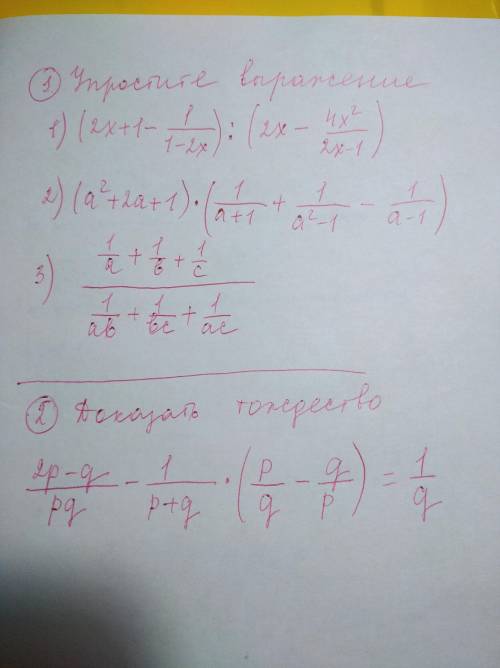 ① Упростите выражение
1) (2x+1 - \frac{1}{1-2x}) : (2x - \frac{4x^2}{2x-1})
2) (a^2+2a+1) · (\frac{1}{a+1} + \frac{1}{a^2-1} - \frac{1}{a-1})
3) \frac{\frac{1}{a} + \frac{1}{b} + \frac{1}{c}}{\frac{1}{ab} + \frac{1}{bc} + \frac{1}{ac}}
② Доказать тождество
\frac{2p-q}{pq} - \frac{1}{p+q} · (\frac{p}{q} - \frac{q}{p}) = \frac{1}{q}